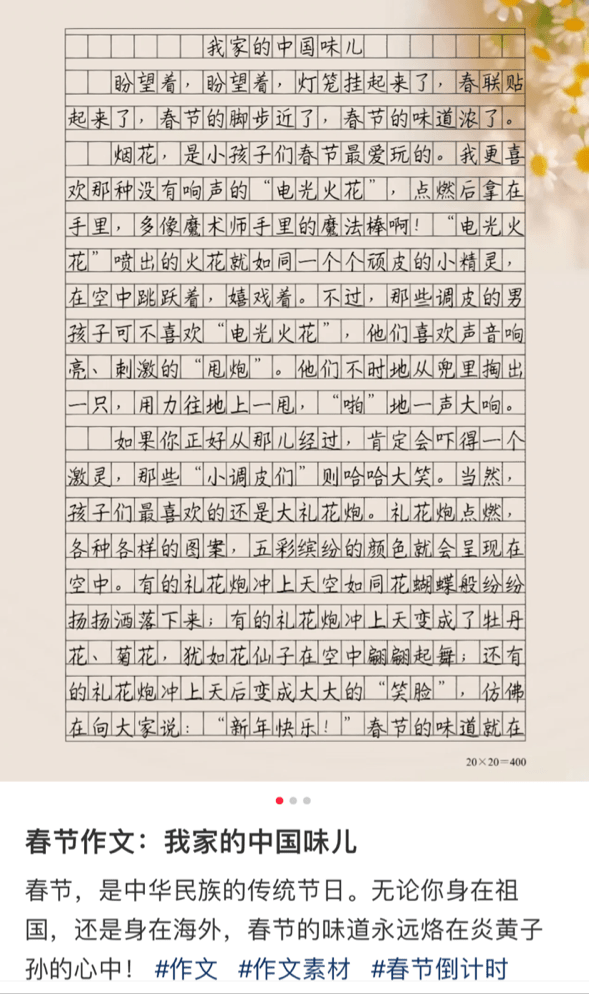 我家的中国味儿
盼望着，盼望着，灯笼挂起来了，春联贴
起来了，春节的脚步近了，春节的味道浓了。
烟花，是小孩子们春节最爱玩的。我更喜
欢那种没有响声的“电光火花”，点燃后拿在
手里，多像魔术师手里的魔法棒啊！“电光火
花”喷出的火花就如同一个个顽皮的小精灵，
在空中跳跃着，嬉戏着。不过，那些调皮的男
孩子可不喜欢“电光火花”，他们喜欢声音响
亮、刺激的“甩炮”。他们不时地从兜里掏出
一只，用力往地上一甩，“啪”地一声大响。
如果你正好从那儿经过，肯定会吓得一个
激灵，那些“小调皮们”则哈哈大笑。当然，
孩子们最喜欢的还是大礼花炮。礼花炮点燃，
各种各样的图案，五彩缤纷的颜色就会呈现在
空中。有的礼花炮冲上天空如同花蝴蝶般纷纷
扬扬洒落下来；有的礼花炮冲上天变成了牡丹
花、菊花，犹如花仙子在空中翩翩起舞；还有
的礼花炮冲上天后变成大大的“笑脸”，仿佛
在向大家说：“新年快乐！”春节的味道就在
20×20=400
春节作文：我家的中国味儿
春节，是中华民族的传统节日。无论你身在祖
国，还是身在海外，春节的味道永远烙在炎黄子
孙的心中！#作文 #作文素材 #春节倒计时